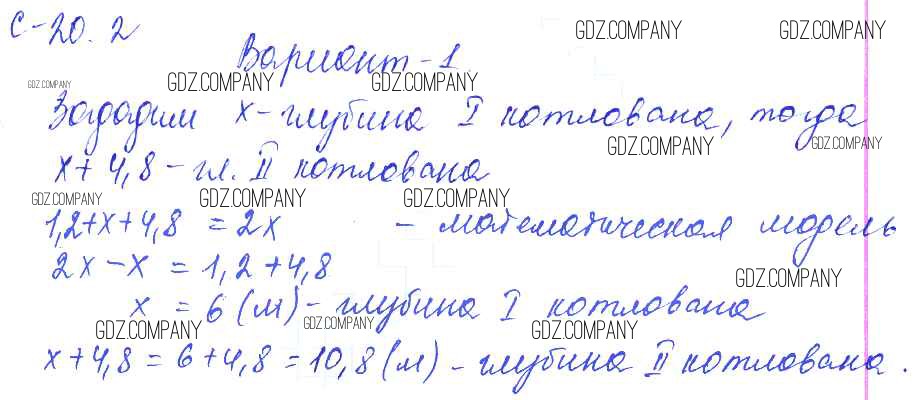 С-20.2
GDZ.COMPANY GDZ.COMPANY
Вариант-1
GDZ.COMPANY GDZ.COMPANY GDZ.COMPANY
Зададим x-глубина I котлована, тогда
GDZ.COMPANY GDZ.COMPANY
x+4,8-гл. II котлована
GDZ.COMPANY GDZ.COMPANY GDZ.COMPANY
1,2+x+4,8 = 2x - математическая модель
2x-x = 1,2+4,8
GDZ.COMPANY
x = 6 (м)- глубина I котлована
GDZ.COMPANY GDZ.COMPANY GDZ.COMPANY
x+4,8 = 6+4,8 = 10,8 (м) - глубина II котлована.